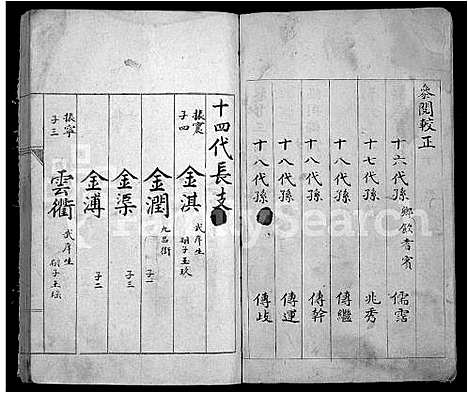 參閱較正
十六代孫 鄉飲耆賓 儒雲
十七代孫 兆秀
十八代孫 傳繼
十八代孫 傳幹
十八代孫 傳運
十八代孫 傳歧
十四代長支
振寰 子四
金淇 武庠生 嗣子玉
金潤 九品銜 子二
金渠 子三
金溥 子二
振寧 子三
雲衢 武庠生 嗣子玉
FamilySearch